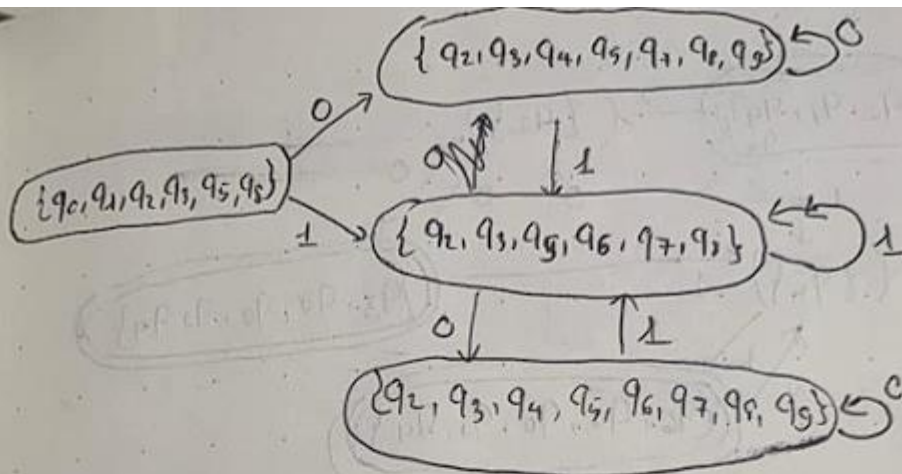 { q2, q3, q4, q5, q7, q8, q9}
0
0
1
{q0, q1, q2, q3, q5, q8}
1
{ q2, q3, q5, q6, q7, q8 }
1
0
1
{q2, q3, q4, q5, q6, q7, q8, q9}
0